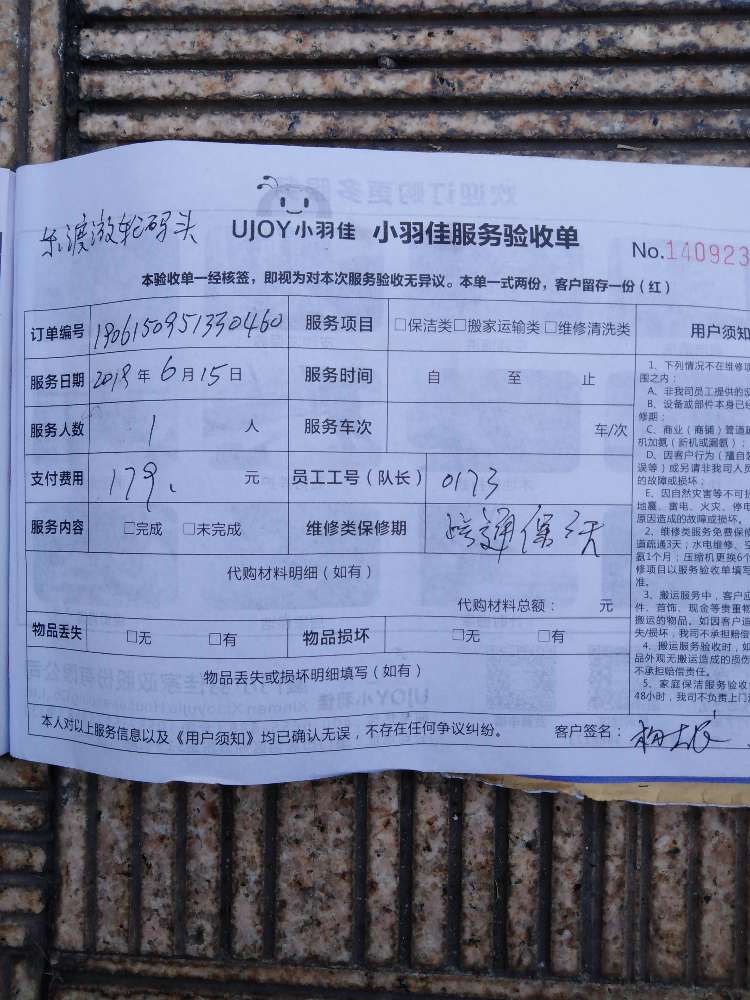 东渡激轮码头
UJOY小羽佳 小羽佳服务验收单
No.140923
本验收单一经核签,即视为对本次服务验收无异议。本单一式两份,客户留存一份(红)
订单编号 190615095133046⁠0 服务项目 □保洁类□搬家运输类□维修清洗类 用户须知
服务日期 2019年6月15日 服务时间 自 至 止
服务人数 1 人 服务车次 车/次
支付费用 179. 元 员工工号(队长) 0173
服务内容 □完成 □未完成 维修类保修期 通保 天
代购材料明细(如有)
代购材料总额: 元
物品丢失 □无 □有 物品损坏 □无 □有
物品丢失或损坏明细填写(如有)
本人对以上服务信息以及《用户须知》均已确认无误,不存在任何争议纠纷。 客户签名:
1、下列情况不在维修项
围之内:
A、非我司员工提供的
B、设备或部件本身已经
修期;
C、商业(商铺)管道
机加氨(新机或漏氨);
D、因客户行为(擅自
误等)或另请非我司人员
的故障或损坏;
E、因自然灾害等不可
地震、雷电、火灾、停电
原因造成的故障或损坏。
2、维修类服务免费保修
道疏通3天;水电维修、空
氨1个月;压缩机更换6个
修项目以服务验收单填写
准。
3、搬运服务中,客户应
件、首饰、现金等贵重物
搬运的物品。如因客户
失/损坏,我司不承担赔偿
4、搬运服务验收时,如
品外观无搬运造成的损伤
不承担赔偿责任。
5、家庭保洁服务验收
48小时,我司不负责上门